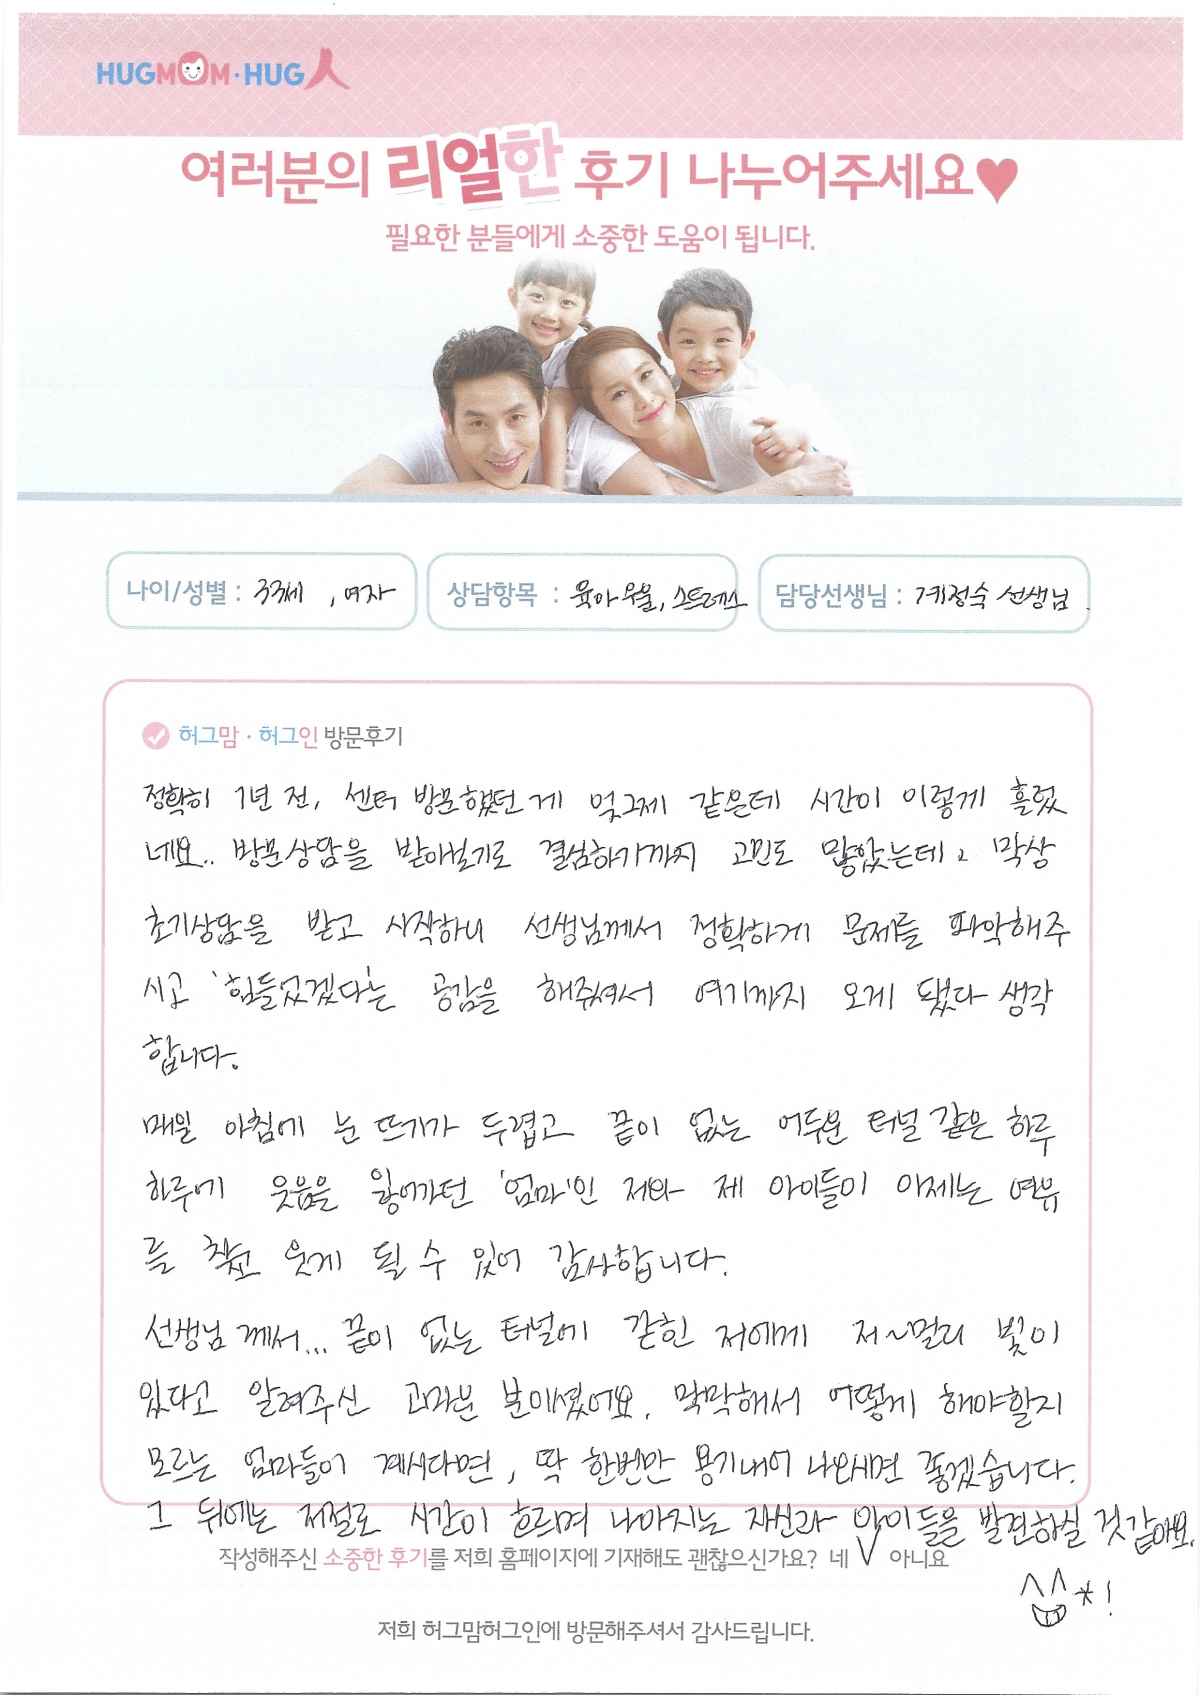 HUGMOM·HUG人
여러분의 리얼한 후기 나누어주세요♥
필요한 분들에게 소중한 도움이 됩니다.
나이/성별 : 33세 , 여자
상담항목 : 육아우울, 스트레스
담당선생님 : 계정숙 선생님.
허그맘 · 허그인 방문후기
정확히 1년 전, 센터 방문했던 게 엊그제 같은데 시간이 이렇게 흘렀
네요.. 방문상담을 받아보기로 결심하기까지 고민도 많았는데, 막상
초기상담을 받고 시작하니 선생님께서 정확하게 문제를 파악해주
시고 '힘들었겠다'는 공감을 해주셔서 여기까지 오게 됐다 생각
합니다.
매일 아침에 눈 뜨기가 두렵고 끝이 없는 어두운 터널 같은 하루
하루에 웃음을 잃어가던 '엄마'인 저와 제 아이들이 이제는 여유
를 찾고 웃게 될 수 있어 감사합니다.
선생님께서... 끝이 없는 터널에 갇힌 저에게 저~멀리 빛이
있다고 알려주신 고마운 분이셨어요. 막막해서 어떻게 해야할지
모르는 엄마들이 계시다면, 딱 한번만 용기내어 나오시면 좋겠습니다.
그 뒤에는 저절로 시간이 흐르며 나아지는 자신과 아이들을 발견하실 것 같아요.
작성해주신 소중한 후기를 저희 홈페이지에 기재해도 괜찮으신가요? 네 V 아니요
^^*!
저희 허그맘허그인에 방문해주셔서 감사드립니다.